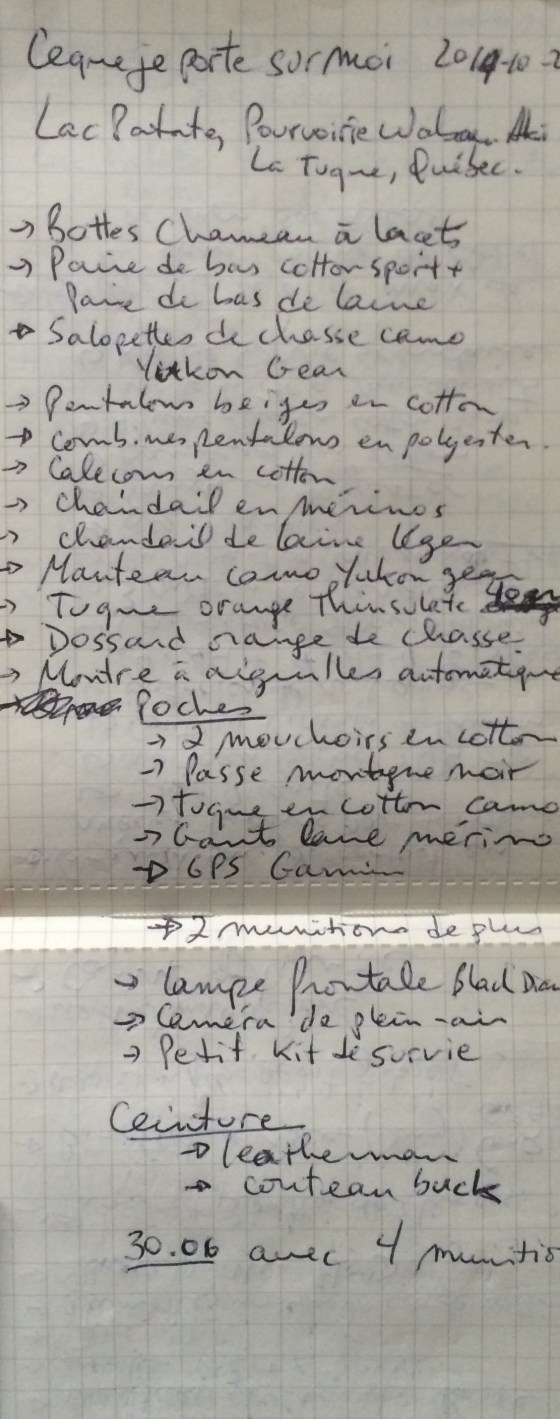 Ce que je porte sur moi 2014-10-2
Lac Patate, Pourvoirie Waban-Aki
La Tuque, Québec.
→ Bottes Chameau à lacets
→ Paire de bas cotton sport +
Paire de bas de laine
→ Salopettes de chasse camo
Yukon Gear
→ Pentalons beiges en cotton
→ Combines, pentalons en polyester.
→ Caleçons en cotton
→ Chandail en mérinos
→ chandail de laine léger
→ Manteau camo Yukon gear
→ Tuque orange Thinsulate
→ Dossard orange de chasse
→ Montre à aiguilles automatique
→ Poches
→ 2 mouchoirs en cotton
→ Passe montagne noir
→ Tuque en cotton camo
→ Gants laine mérino
→ GPS Garmin
→ 2 munitions de plus
→ Lampe frontale Black Dia
→ Caméra de plein-air
→ Petit kit de survie
Ceinture
→ leatherman
→ couteau buck
30.06 avec 4 munitio